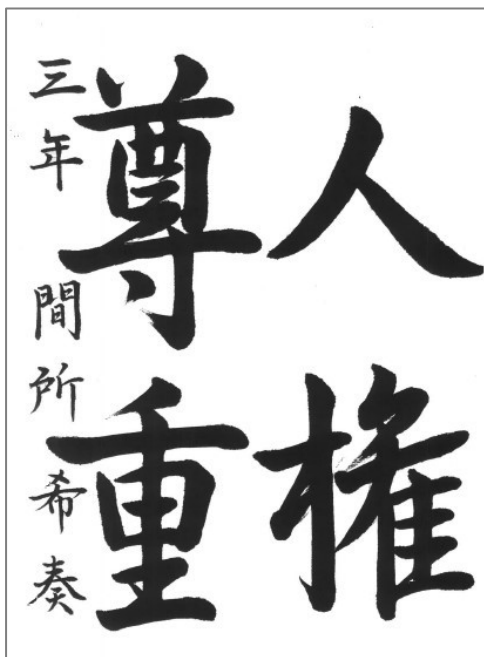 人権
尊重
三年 間所希奏